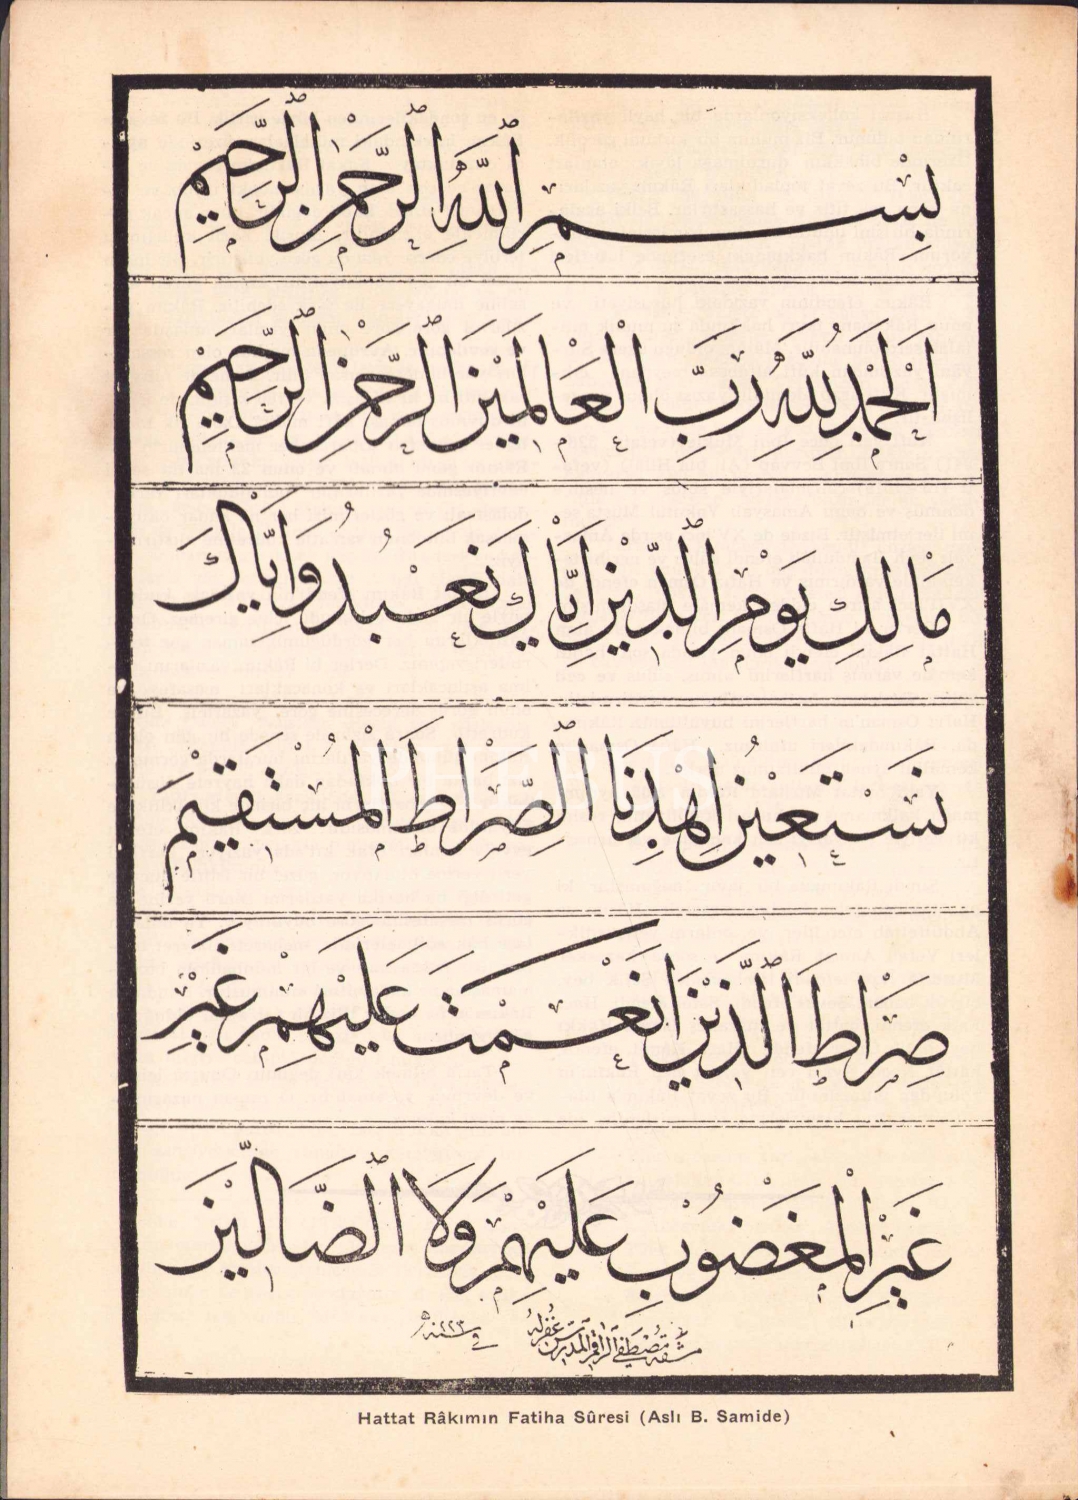 بِسْمِ ٱللَّهِ ٱلرَّحْمٰنِ ٱلرَّحِيمِ
اَلْحَمْدُ لِلّٰهِ رَبِّ الْعَالَمِينَ الرَّحْمٰنِ الرَّحِيمِ
مَالِكِ يَوْمِ ٱلدِّينِ اِيَّاكَ نَعْبُدُ وَاِيَّاكَ
نَسْتَعِينُ اِهْدِنَا ٱلصِّرَاطَ الْمُسْتَقِيمَ
صِرَاطَ ٱلَّذِينَ اَنْعَمْتَ عَلَيْهِمْ غَيْرِ
غَيْرِ الْمَغْضُوبِ عَلَيْهِمْ وَلَا ٱلضَّالِّينَ
مشقه مصطفى الراقم المدرس غفرله
في سنة
PHEBUS
Hattat Râkımın Fatiha Sûresi (Aslı B. Samide)